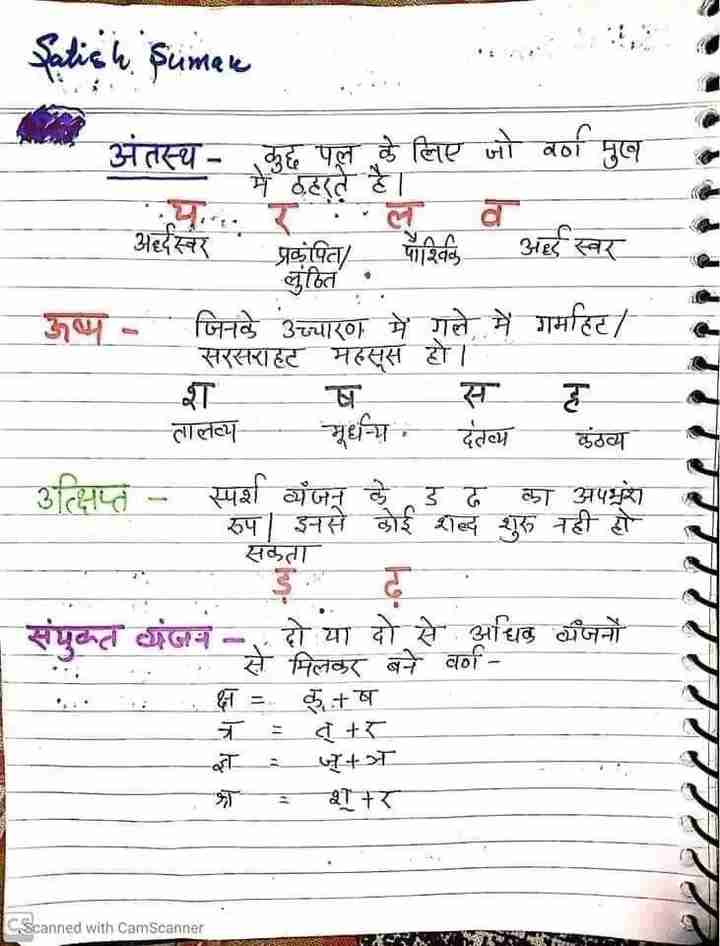 Satish Suman
अंतस्थ - कुछ पल के लिए जो वर्ण मुख
में ठहरते है।
य र ल व
अर्ध्दस्वर प्रकंपित/ पार्श्विक अर्ध्द स्वर
लुंठित
ऊष्म - जिनके उच्चारण में गले में गर्माहट/
सरसराहट महसूस हो।
श ष स ह
तालव्य मूर्धन्य दंतव्य कंठव्य
उत्क्षिप्त - स्पर्श व्यंजन के ड ढ का अपभ्रंश
रूप| इनसे कोई शब्द शुरू नही हो
सकता
ड़ ढ़
संयुक्त व्यंजन - दो या दो से अधिक व्यंजनों
से मिलकर बने वर्ण -
क्ष = क् + ष
त्र = त् + र
ज्ञ = ज् + ञ
श्र = श् + र
CS Scanned with CamScanner